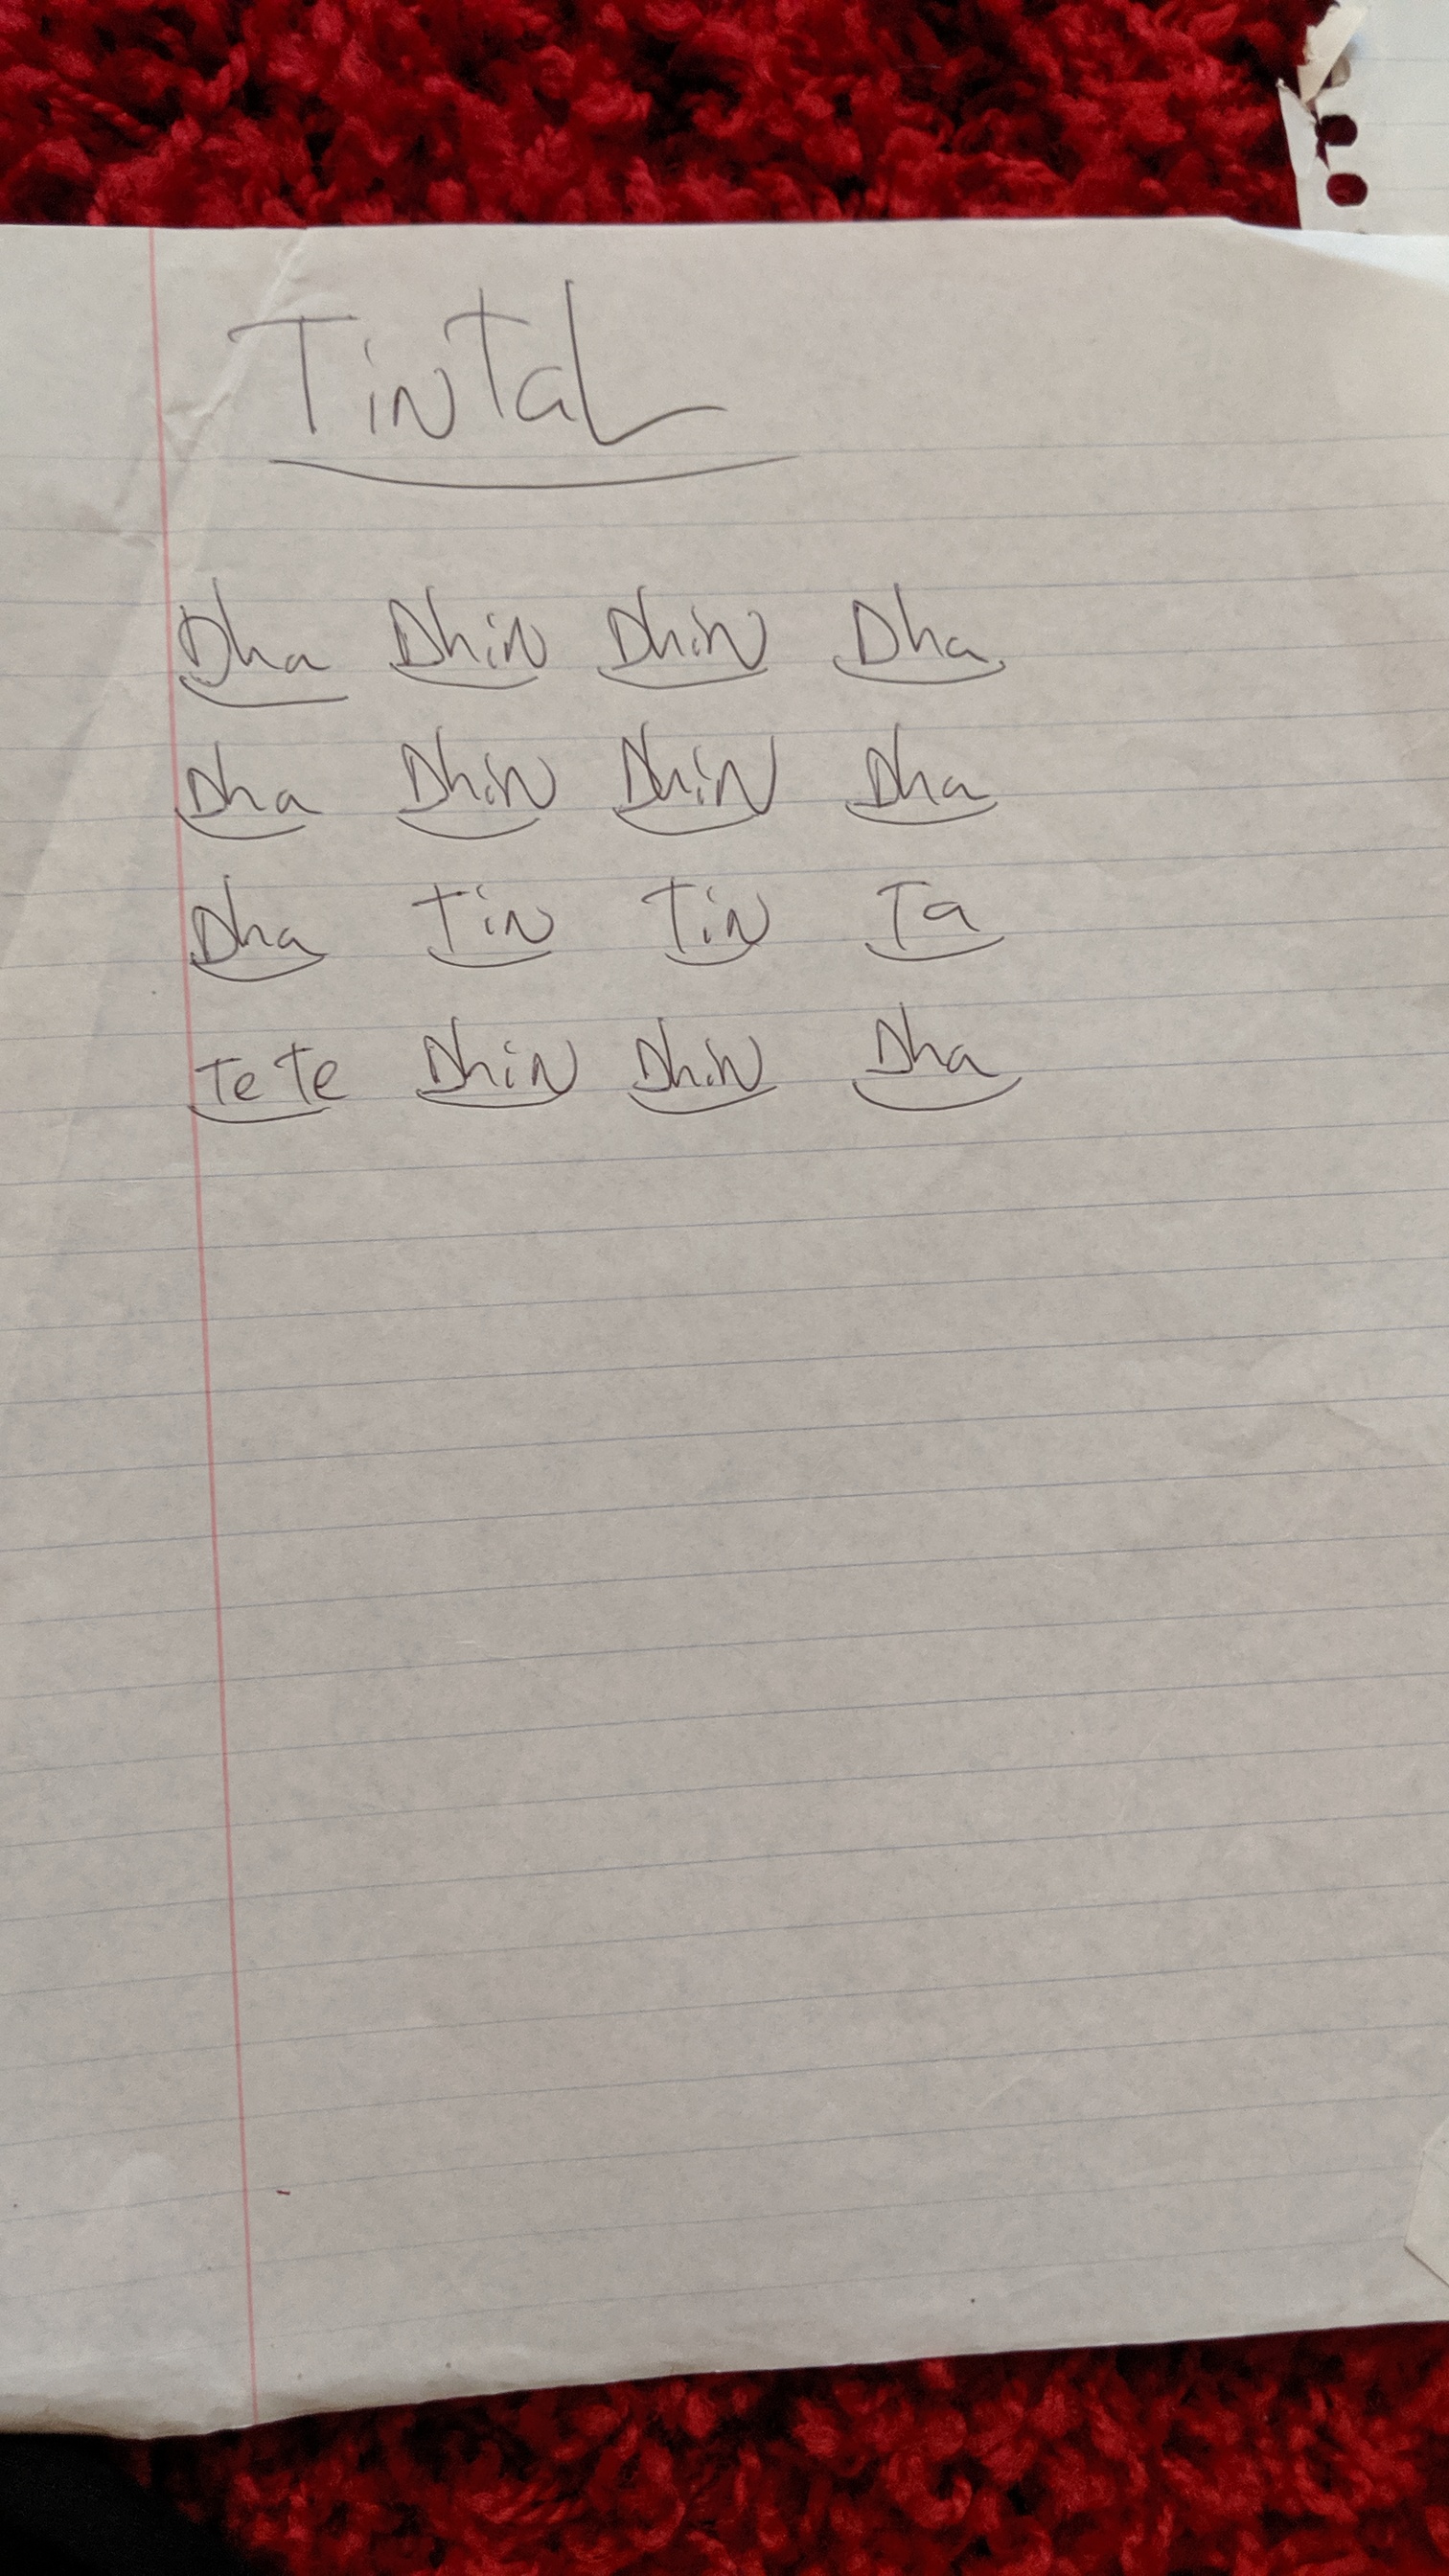 TinTal
Dha Dhin Dhin Dha
Dha Dhin Dhin Dha
Dha Tin Tin Ta
TeTe Dhin Dhin Dha